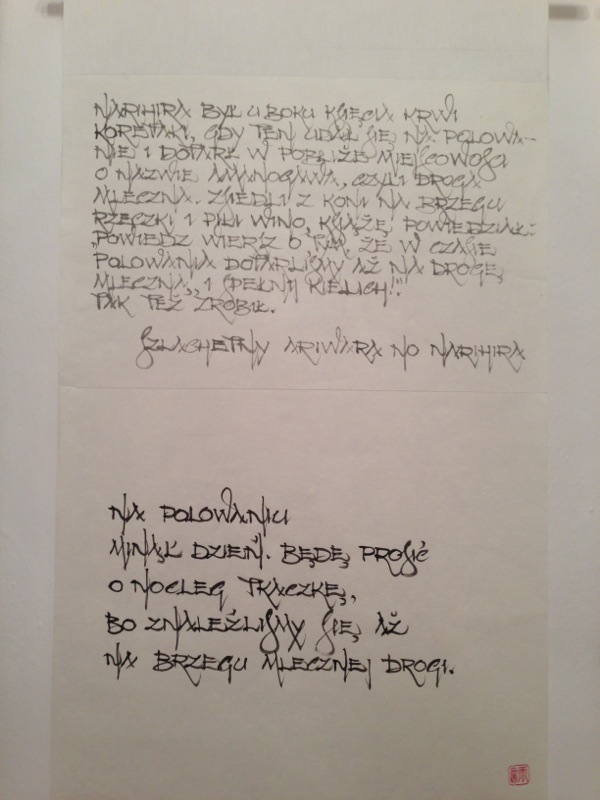 NARIHIRA BYŁ U BOKU KSIĘCIA KRWI
KORETAKI, GDY TEN UDAŁ SIĘ NA POLOWA-
NIE I DOTARŁ W POBLIŻE MIEJSCOWOŚCI
O NAZWIE AMANOGAWA, CZYLI DROGA
MLECZNA. ZSIEDLI Z KONI NA BRZEGU
RZECZKI I PILI WINO, KSIĄŻĘ POWIEDZIAŁ:
„POWIEDZ WIERSZ O TYM, ŻE W CZASIE
POLOWANIA DOTARLIŚMY AŻ NA DROGĘ
MLECZNĄ, I SPEŁNIJ KIELICH!"
TAK TEŻ ZROBIŁ.
SZLACHETNY ARIWARA NO NARIHIRA
NA POLOWANIU
MINĄŁ DZIEŃ. BĘDĘ PROSIĆ
O NOCLEG TKACZKĘ,
BO ZNALEŹLIŚMY SIĘ AŻ
NA BRZEGU MLECZNEJ DROGI.